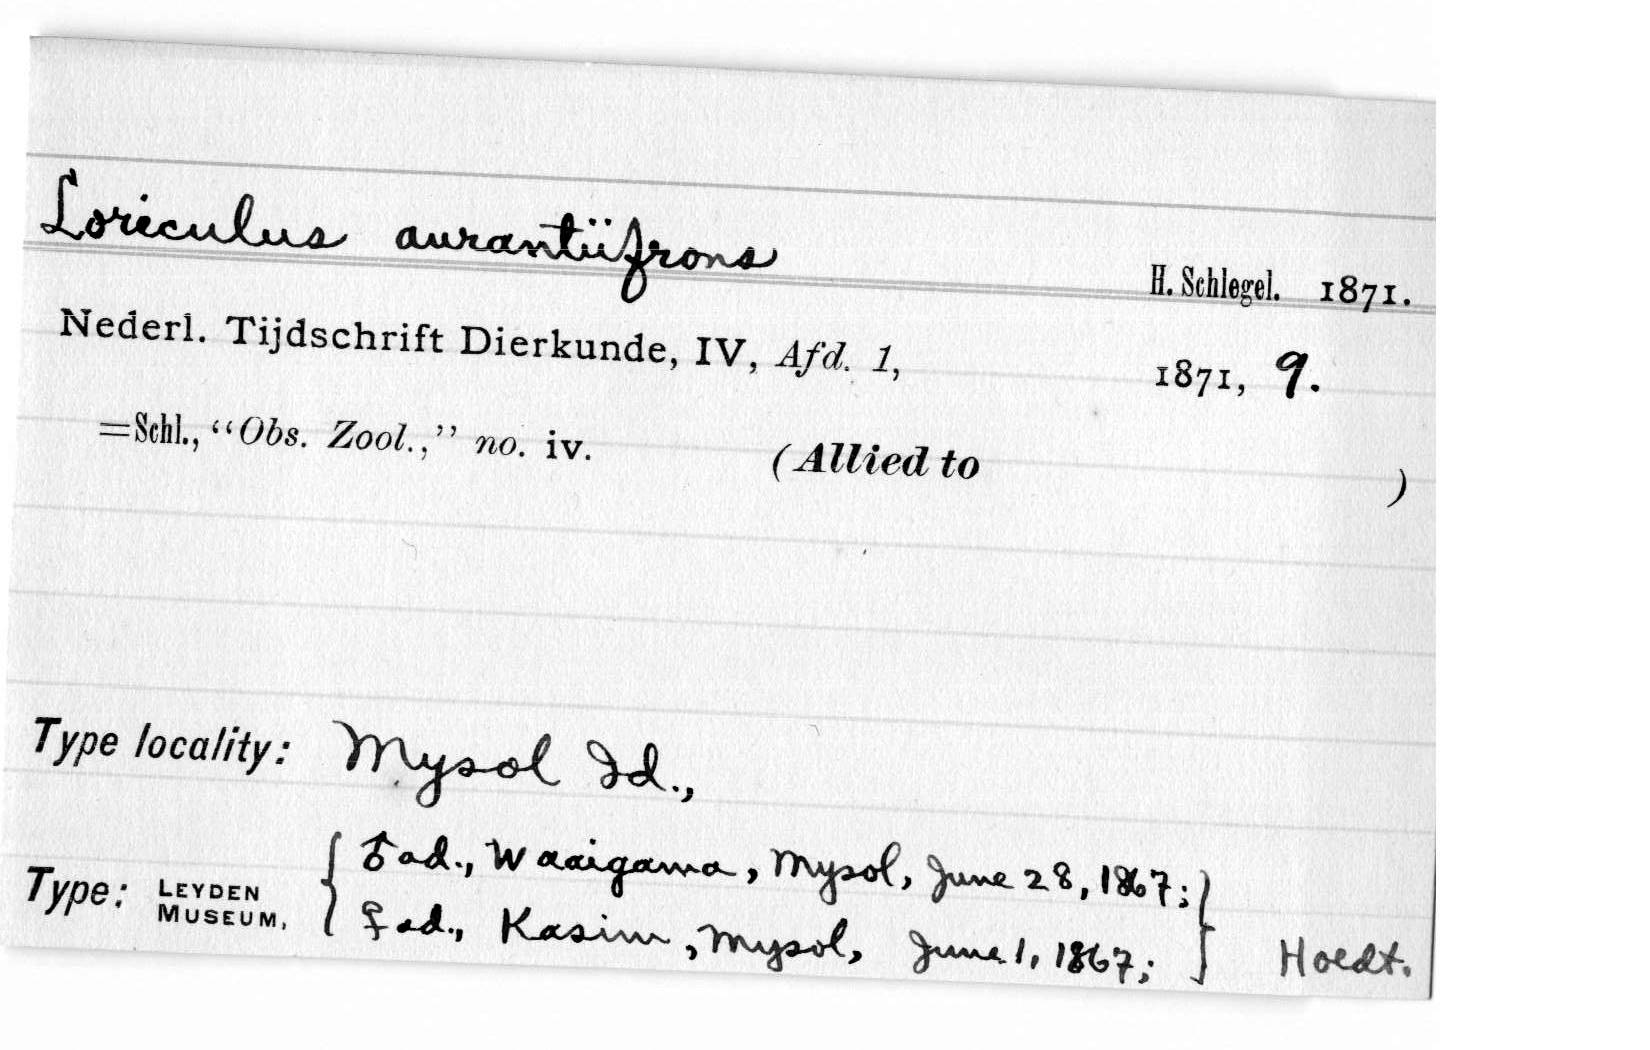 Loriculus aurantiifrons
H. Schlegel. 1871.
Nederl. Tijdschrift Dierkunde, IV, Afd. 1, 1871, 9.
=Schl., “Obs. Zool.,” no. iv. (Allied to )
Type locality: Mysol Id.,
Type: LEYDEN MUSEUM, { ♂ ad., Waaigama, Mysol, June 28, 1867; }
♀ ad., Kasim, Mysol, June 1, 1867; } Hoedt.